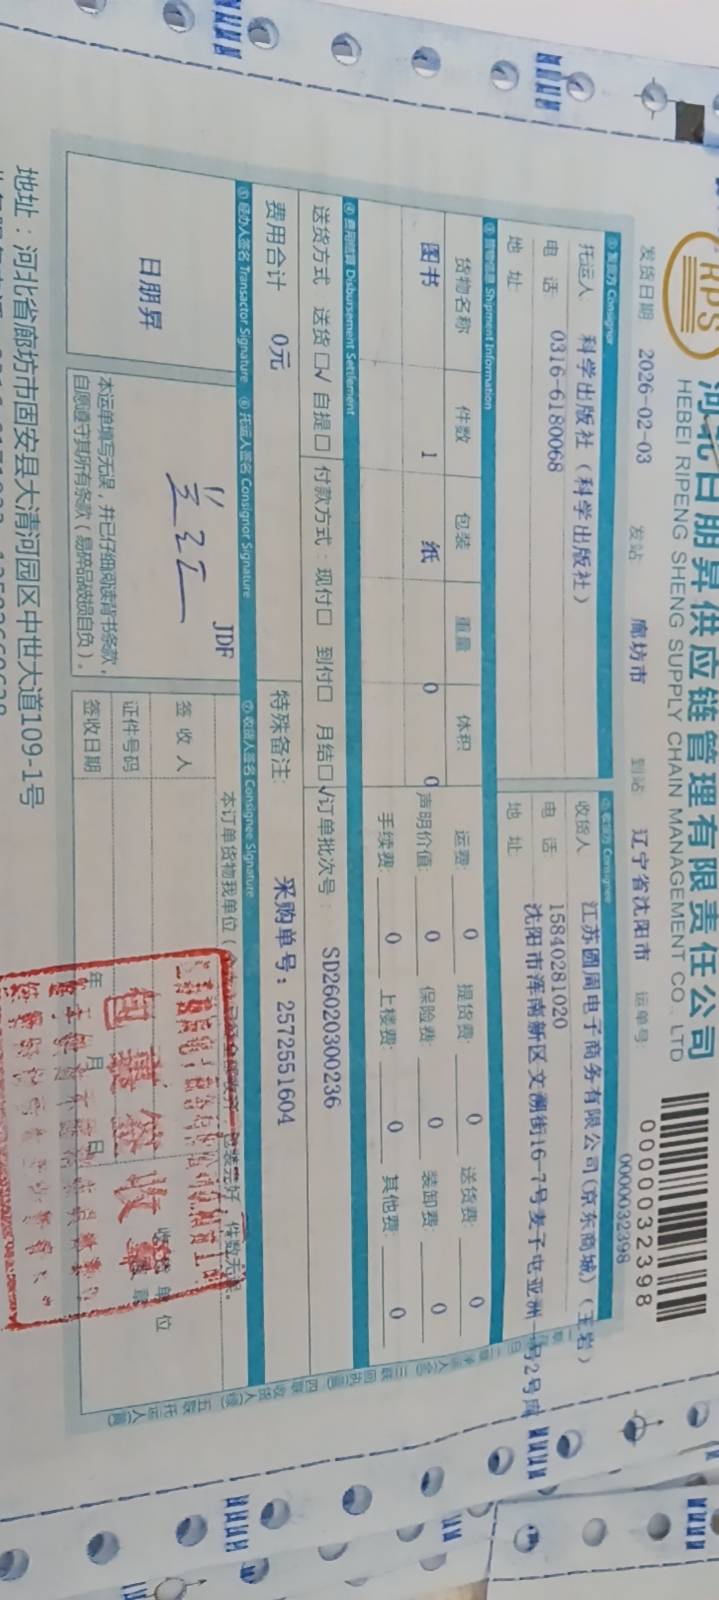 RPS
河北日朋昇供应链管理有限责任公司
HEBEI RIPENG SHENG SUPPLY CHAIN MANAGEMENT CO., LTD
0000032398
0000032398
发货日期 2026-02-03 发站 廊坊市 到站: 辽宁省沈阳市 运单号:
① 发货方 Consignor ② 收货方 Consignee
托运人 科学出版社（科学出版社） 收货人 江苏圆周电子商务有限公司(京东商城)（王岩）
电 话: 0316-6180068 电 话: 15840281020
地 址: 地 址: 沈阳市浑南新区文溯街16-7号麦子屯亚洲一号2号库
③ 货物信息 Shipment Information
货物名称 件数 包装 重量 体积 运费: 0 提货费: 0 送货费: 0
图书 1 纸 0 0 声明价值: 0 保险费: 0 装卸费: 0
手续费: 0 上楼费: 0 其他费: 0
④ 费用结算 Disbursement Settlement
送货方式 送货□√ 自提□ 付款方式：现付□ 到付□ 月结□√ 订单批次号： SD26020300236
费用合计 0元 特殊备注: 采购单号：2572551604
⑤ 经办人签名 Transactor Signature ⑥ 托运人签名 Consignor Signature ⑦ 收货人签名 Consignee Signature
日朋昇
JDF
本运单填写无误，并已仔细阅读背书条款，
自愿遵守其所有条款（易碎品破损自负）。
本订单货物我单位（ 件数无误。
签 收 人
证件号码
签收日期 年 月 日
地址：河北省廊坊市固安县大清河园区中世大道109-1号